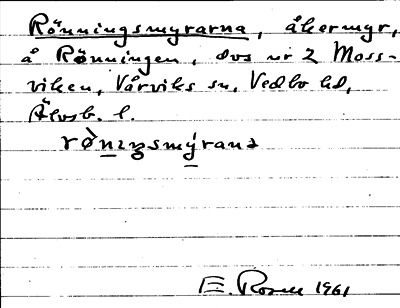 Rönningsmyrarna, åkermyr,
å Rönningen, dvs nr 2 Moss-
viken, Vårviks sn, Vedbo hd,
Älvsb. l.
E. Rosell 1961